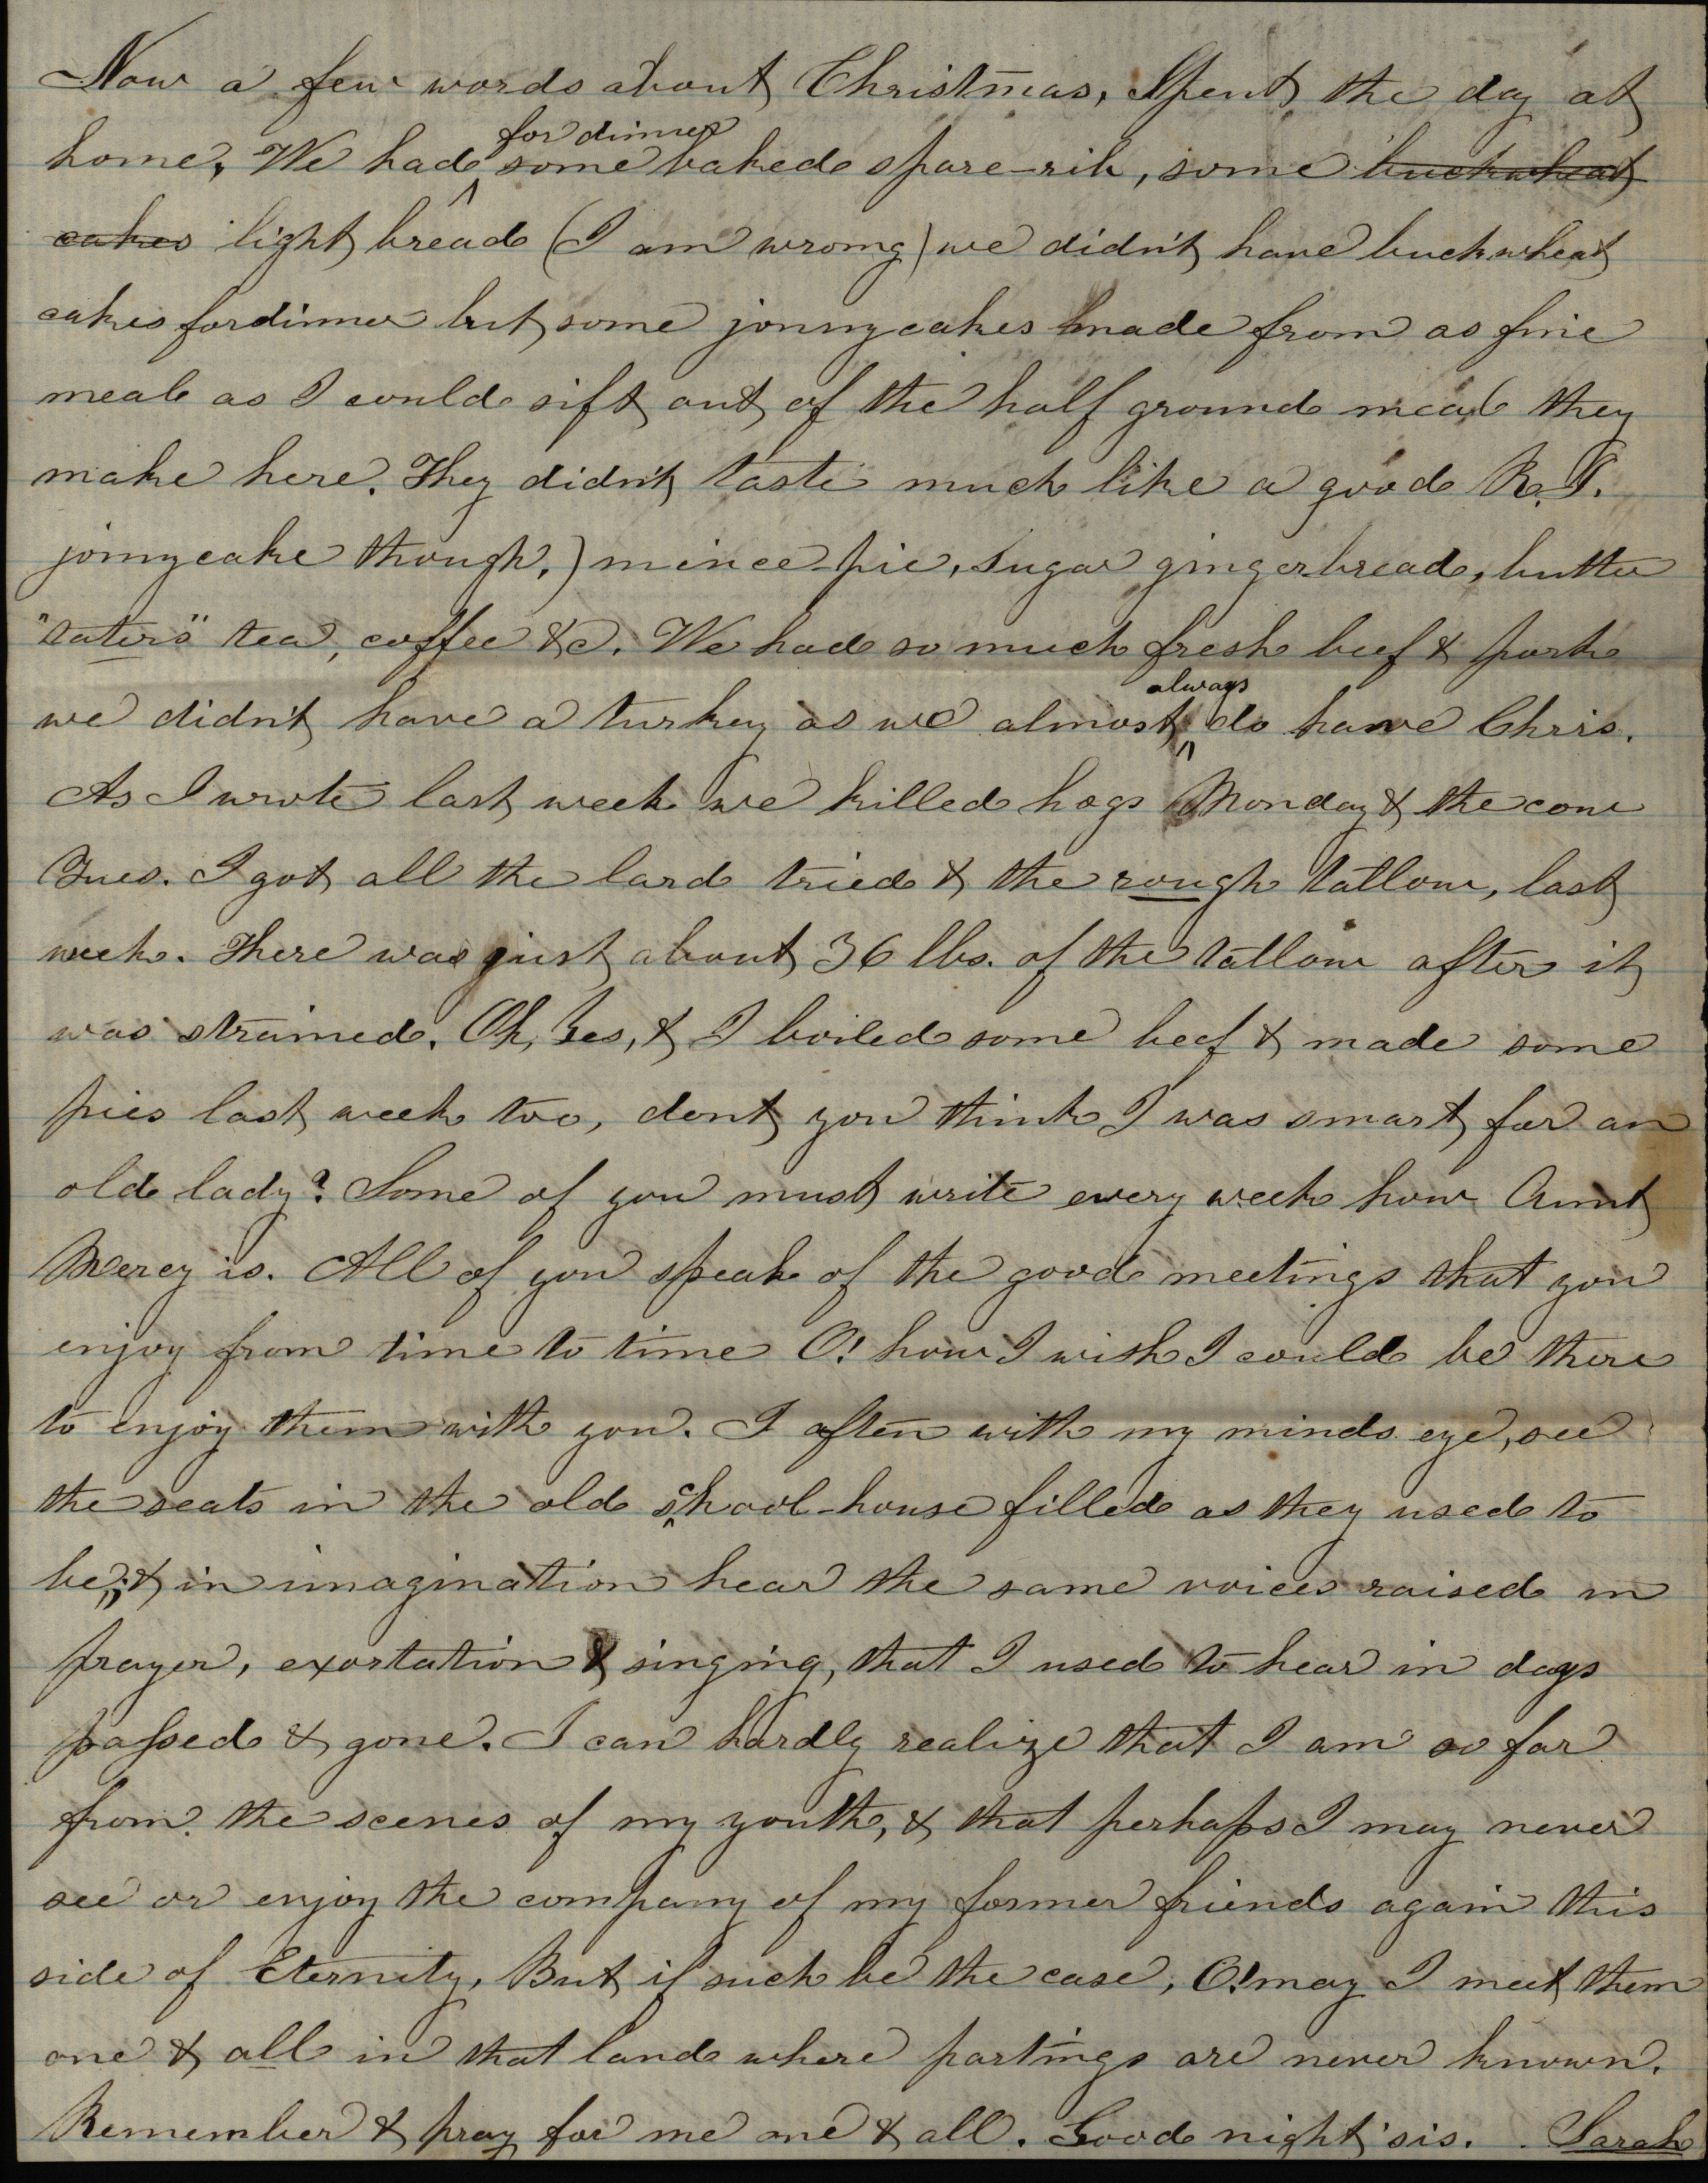 Now a few words about Christmas, Spent the day at
for dinner
home, We had some baked spare-rib, some buckwheat
cakes light bread (I am wrong) we didn't have buckwheat
cakes for dinner but some jonnycakes made from as fine
meal as I could sift out of the half ground meal they
make here. They didn't taste much like a good R.I.
jonnycake though.) mince pie, sugar gingerbread, butter
"taters" tea, coffee &c. We had so much fresh beef & pork
always
we didn't have a turkey as we almost do have Chris.
As I wrote last week we killed hogs Monday & the cow
Tues. I got all the lard tried & the rough tallow, last
week. There was just about 36 lbs. of the tallow after it
was strained. Oh, Yes, & I boiled some beef & made some
pies last week too, dont you think I was smart for an
old lady? Some of you must write every week how Aunt
Mercy is. All of you speak of the good meetings that you
enjoy from time to time O! how I wish I could be there
to enjoy them with you. I often with my minds eye, see
the seats in the old school-house filled as they used to
be; & in imagination hear the same voices raised in
prayer, exortation & singing, that I used to hear in days
passed & gone. I can hardly realize that I am so far
from the scenes of my youth, & that perhaps I may never
see or enjoy the company of my former friends again this
side of Eternity, But if such be the case, O! may I meet them
one & all in that land where partings are never known.
Remember & pray for me one & all. Good night sis. Sarah